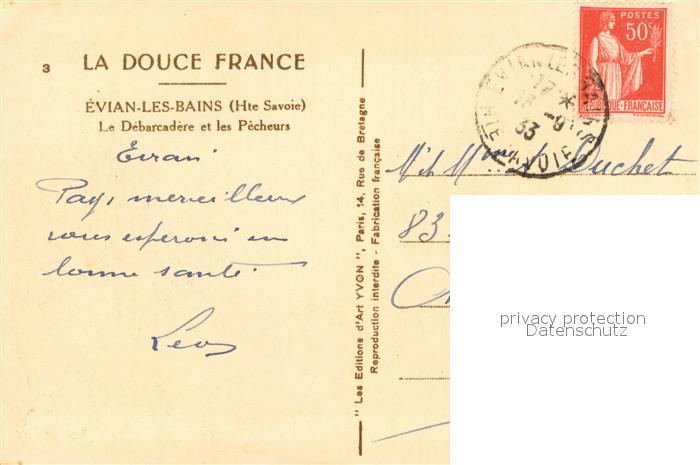 3 LA DOUCE FRANCE
ÉVIAN-LES-BAINS (Hte Savoie)
Le Débarcadère et les Pêcheurs
Evian
Pays merveilleux
vous esperons en
bonne santé.
Léon
" Les Editions d'Art YVON ", Paris, 14, Rue de Bretagne
Reproduction interdite - Fabrication française
POSTES
50c
REPUBLIQUE FRANÇAISE
EVIAN-LES-BAINS
17 *
-9
33
HTE SAVOIE
Mr & Mme Duchet
83
privacy protection
Datenschutz